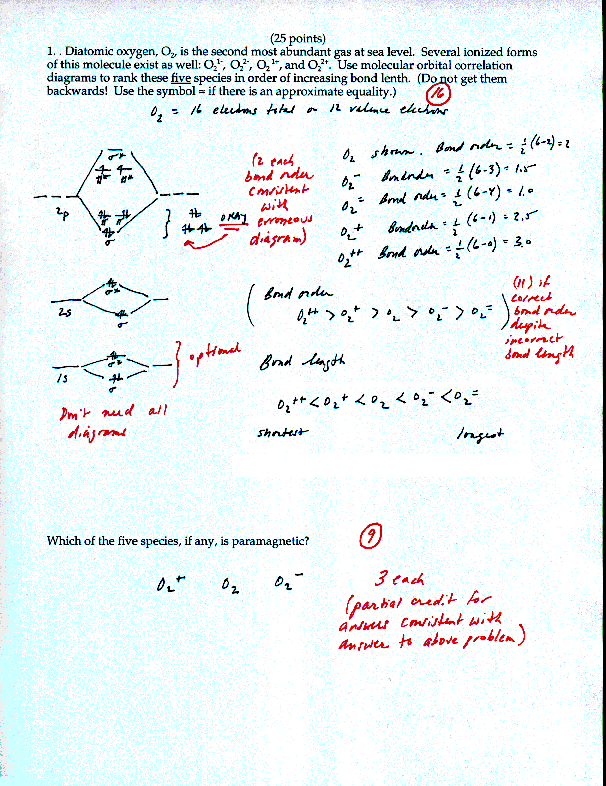 (25 points)
1. . Diatomic oxygen, O₂, is the second most abundant gas at sea level. Several ionized forms
of this molecule exist as well: O₂¹⁻, O₂²⁻, O₂¹⁺, and O₂²⁺. Use molecular orbital correlation
diagrams to rank these five species in order of increasing bond lenth. (Do not get them
backwards! Use the symbol = if there is an approximate equality.)
16
O₂ = 16 electrons total or 12 valence electrons
σ*
π* π*
2p
π π
σ
OKAY
(2 each
bond order
consistent
with
erroneous
diagram)
O₂ shown. Bond order = ½(6-2) = 2
O₂⁻ Bond order = ½(6-3) = 1.5
O₂⁼ Bond order = ½(6-4) = 1.0
O₂⁺ Bond order = ½(6-1) = 2.5
O₂⁺⁺ Bond order = ½(6-0) = 3.0
σ*
2s
σ
σ*
1s
σ
} optional
Don't need all
diagrams
Bond order
O₂⁺⁺ > O₂⁺ > O₂ > O₂⁻ > O₂⁼
(11) if
correct
bond order
depite
incorrect
bond length
Bond length
O₂⁺⁺ < O₂⁺ < O₂ < O₂⁻ < O₂⁼
shortest longest
Which of the five species, if any, is paramagnetic?
9
O₂⁺ O₂ O₂⁻
3 each
(partial credit for
answers consistent with
answer to above problem)